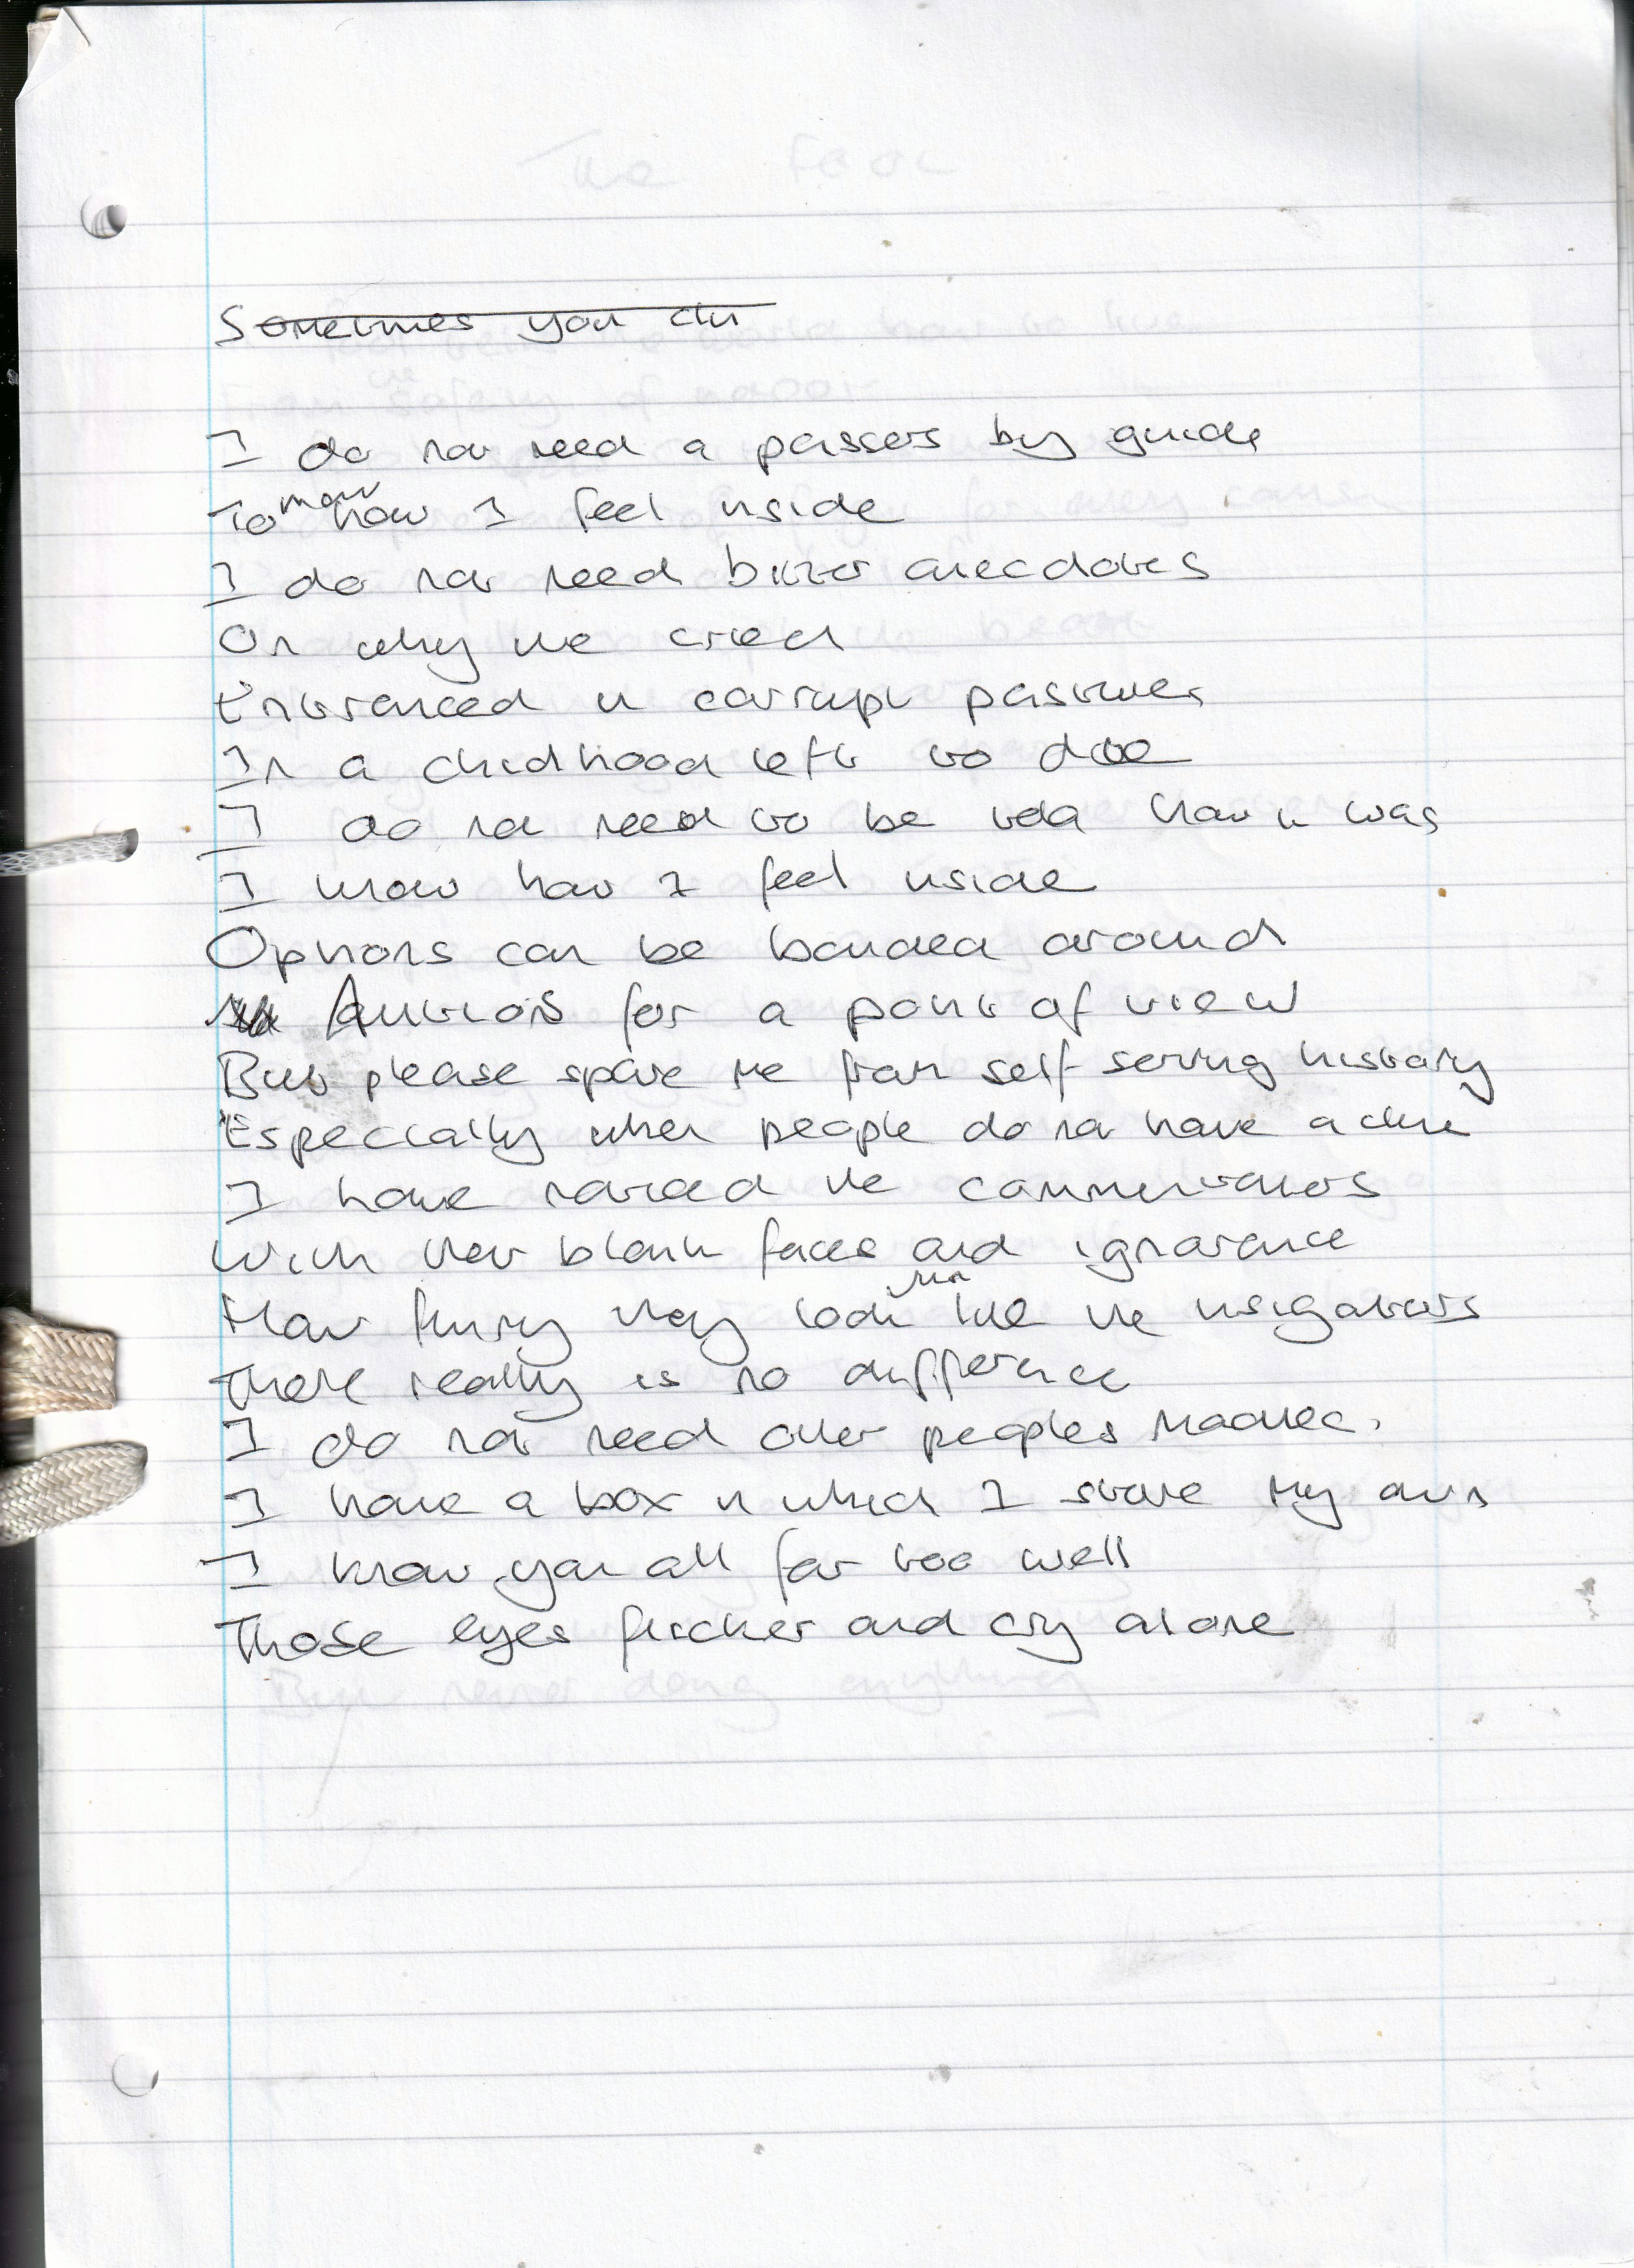 Sometimes you
I do not need a passers by guide
To know how I feel inside
I do not need bitter anecdotes
On why we cried
Entranced in corrupt pastimes
In a childhood left to die
I do not need to be told how it was
I know how I feel inside
Opnions can be bandied around
for a point of view
But please spare me from self serving history
Especially when people do not have a clue
I have noticed the commentators
With their blank faces and ignorance
How funny they look just like the insigators
There really is no difference
I do not need other peoples
I have a box in which I store my own
I know you all far too well
Those eyes flicker and cry alone